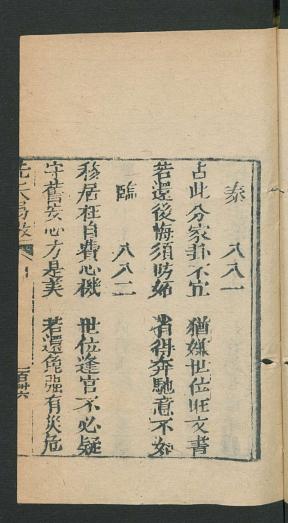 泰 八八一
占此分家卦不宜 猶嫌世位旺文書
若還後悔須防始 看得奔馳意不如
臨 八八二
移居枉自費心機 世位逢官不必疑
守舊安心方是美 若還勉強有災危